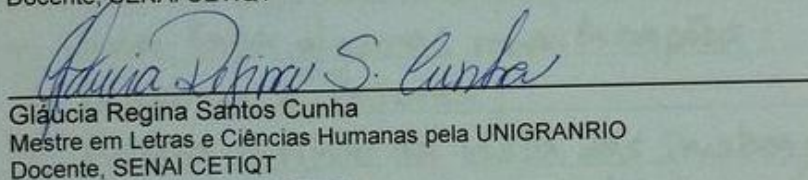 Docente, SENAI CETIQT
Gláucia Regina S. Cunha
Gláucia Regina Santos Cunha
Mestre em Letras e Ciências Humanas pela UNIGRANRIO
Docente, SENAI CETIQT